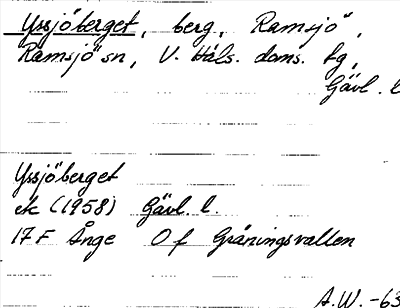 Yssjöberget, berg, Ramsjö,
Ramsjö sn, V. Häls. doms. fg,
Gävl. l
Yssjöberget
ek (1958) Gävl. l.
17 F Ånge 0 f Gråningsvallen
A.W. -63